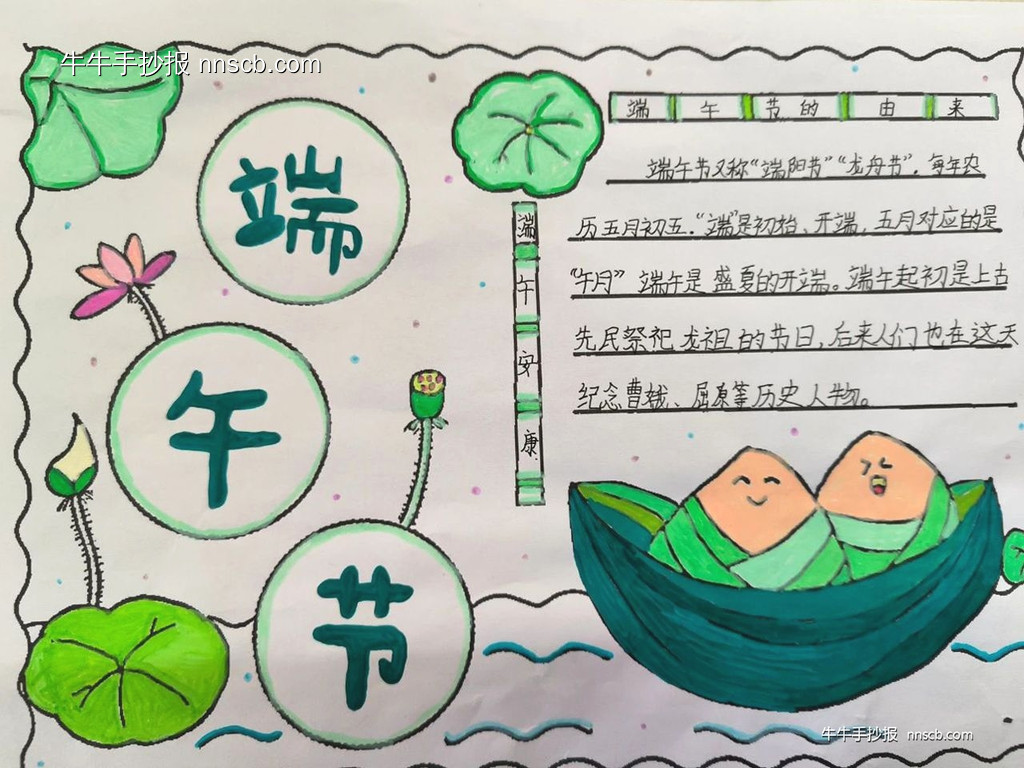 牛牛手抄报 nnscb.com
端
午
节
端午节的由来
端午安康
端午节又称“端阳节”“龙舟节”，每年农
历五月初五。“端”是初始、开端，五月对应的是
“午月” 端午是盛夏的开端。端午起初是上古
先民祭祀龙祖的节日，后来人们也在这天
纪念曹娥、屈原等历史人物。
牛牛手抄报 nnscb.com